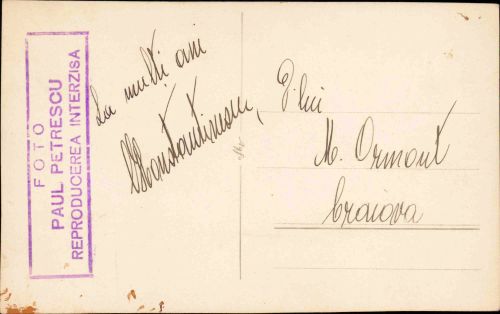 FOTO
PAUL PETRESCU
REPRODUCEREA INTERZISA
La mulți ani
Constantinescu,
M. Ormont
Craiova